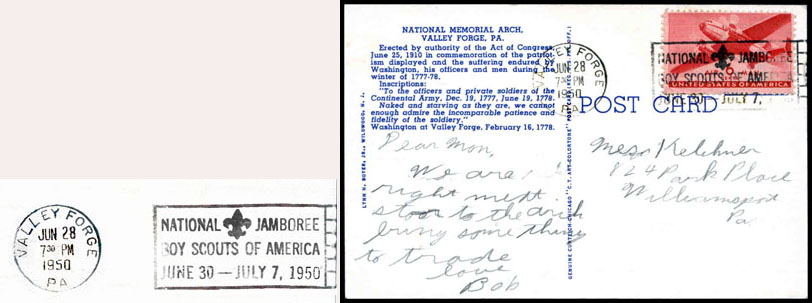 VALLEY FORGE
JUN 28
7 30 PM
1950
PA
NATIONAL JAMBOREE
BOY SCOUTS OF AMERICA
JUNE 30 — JULY 7, 1950
NATIONAL MEMORIAL ARCH,
VALLEY FORGE, PA.
Erected by authority of the Act of Congress,
June 25, 1910 in commemoration of the patriot-
ism displayed and the suffering endured by
Washington, his officers and men during the
winter of 1777-78.
Inscriptions:
"To the officers and private soldiers of the
Continental Army, Dec. 19, 1777, June 19, 1778.
Naked and starving as they are, we cannot
enough admire the incomparable patience and
fidelity of the soldiery."
Washington at Valley Forge, February 16, 1778.
LYNN H. BOYER, JR., WILDWOOD, N. J.
GENUINE CURTEICH-CHICAGO "C.T. ART-COLORTONE" POST CARD
VALLEY FORGE
JUN 28
7 30 PM
1950
PA
NATIONAL JAMBOREE
BOY SCOUTS OF AMERICA
JUNE 30 — JULY 7,
UNITED STATES OF AMERICA
POST CARD
Dear Mom,
We are
right mept
stoor to the arch
bring some thing
to trade
love
Bob
Mess Kelchner
824 Park Place
Williamsport
Pa